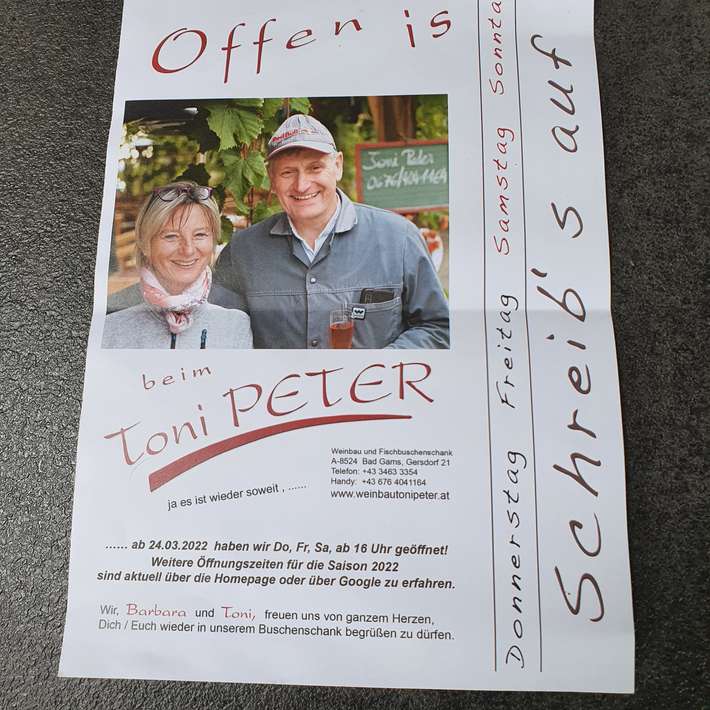 Offen is
Toni Peter
0676/4041164
beim
Toni PETER
Weinbau und Fischbuschenschank
A-8524 Bad Gams, Gersdorf 21
Telefon: +43 3463 3354
Handy: +43 676 4041164
www.weinbautonipeter.at
ja es ist wieder soweit , ......
...... ab 24.03.2022 haben wir Do, Fr, Sa, ab 16 Uhr geöffnet!
Weitere Öffnungszeiten für die Saison 2022
sind aktuell über die Homepage oder über Google zu erfahren.
Wir, Barbara und Toni, freuen uns von ganzem Herzen,
Dich / Euch wieder in unserem Buschenschank begrüßen zu dürfen.
Donnerstag Freitag Samstag Sonnta
Schreib's auf